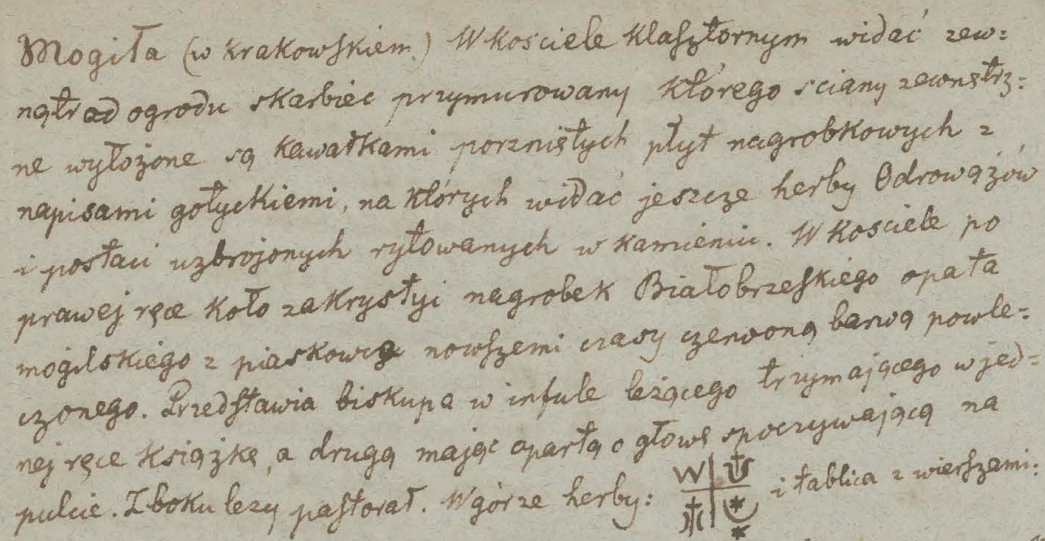 Mogiła (w Krakowskiem.) W kosciele klasztornym widać zew=
nątrz od ogrodu skarbiec przymurowany którego sciany zewnętrz=
ne wyłożone są kawałkami porzniętych płyt nagrobkowych z
napisami gotyckiemi, na których widać jeszcze herby Odrowążów
i postaci uzbrojonych rytowanych w kamieniu. W kosciele po
prawej ręce koło zakrystyi nagrobek Białobrzeskiego opata
mogilskiego z piaskowca nowszemi czasy czerwoną barwą powle=
czonego. Przedstawia biskupa w infule leżącego trzymającego w jed=
nej ręce książkę, a drugą mając opartą o głowę spoczywającą na
pulcie. Z boku lezy pastorał. W górze herby: W i tablica z wierszami: